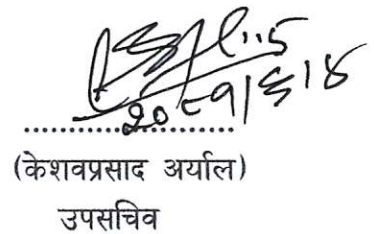 २०८१।६।४
....................
(केशवप्रसाद अर्याल)
उपसचिव